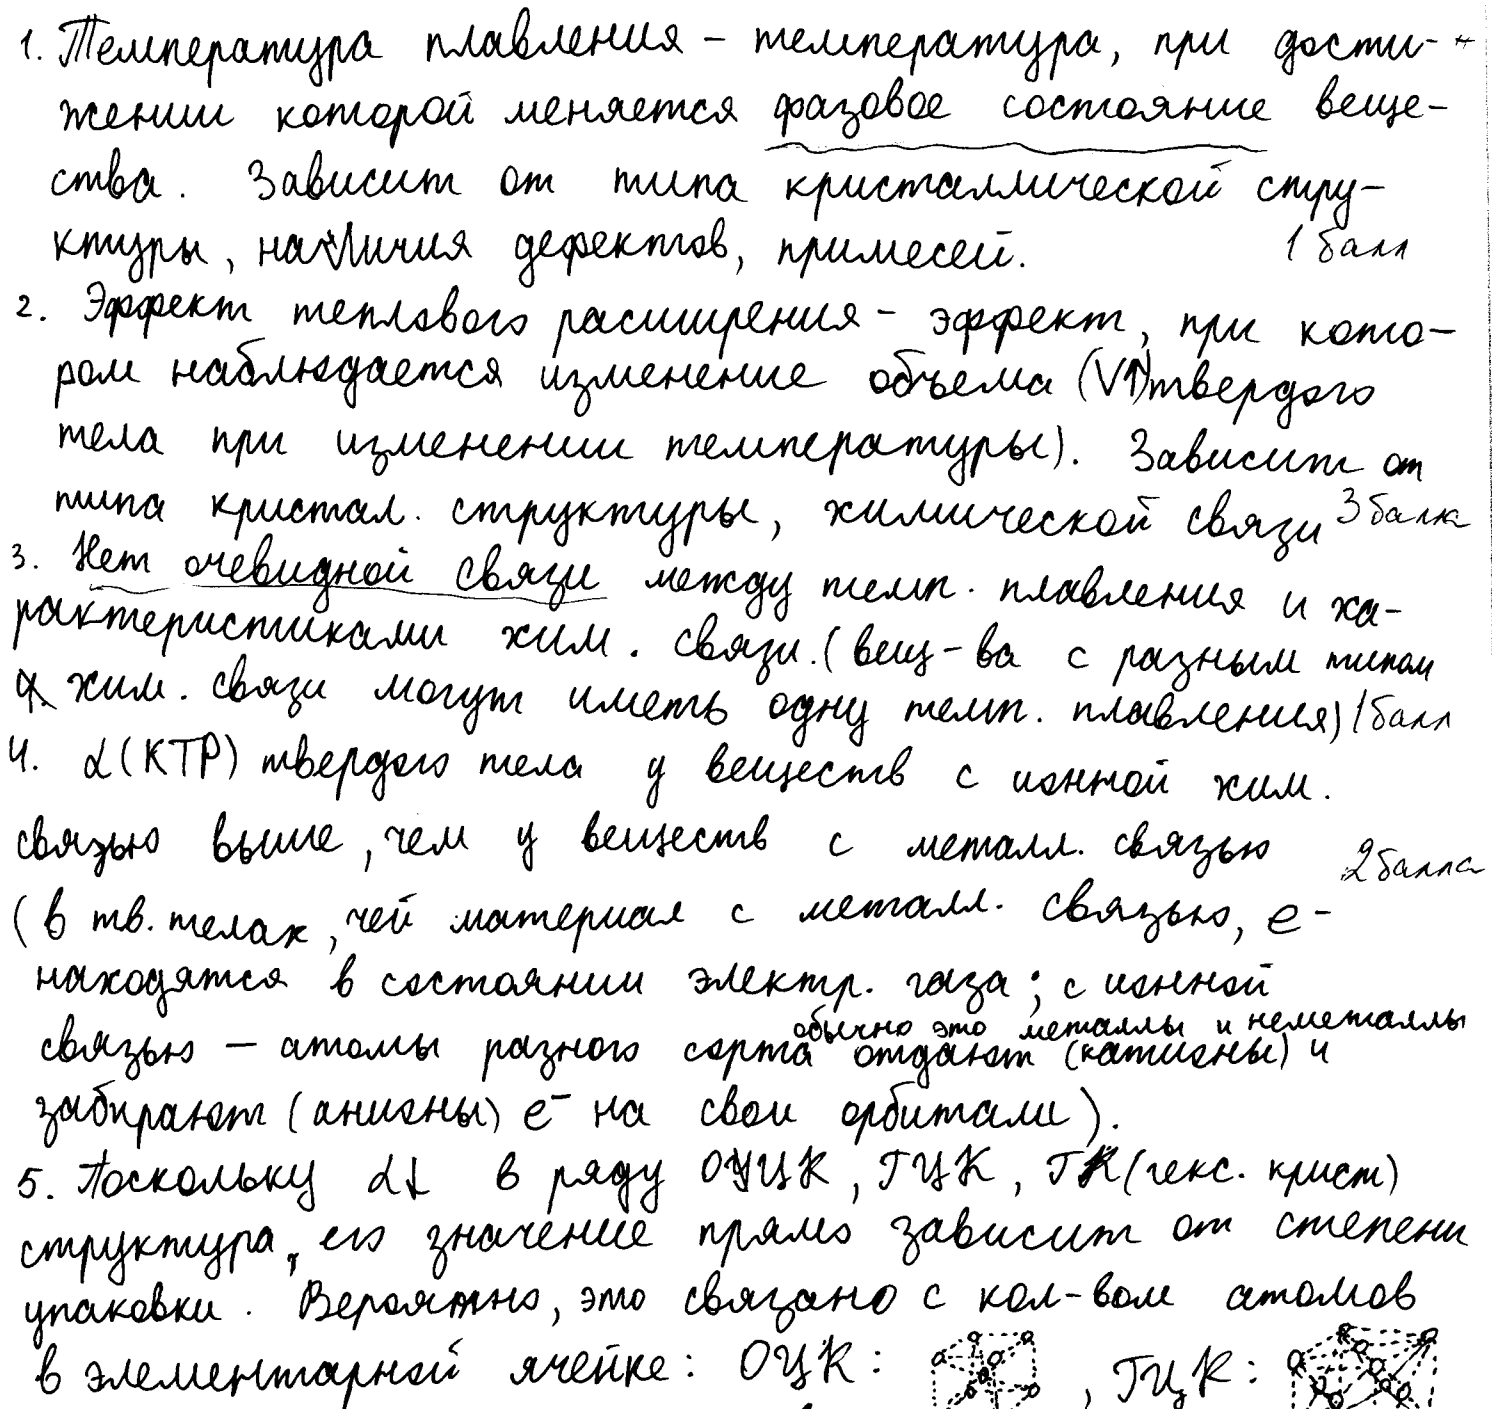 1. Температура плавления – температура, при дости-
жении которой меняется фазовое состояние веще-
ства. Зависит от типа кристаллической стру-
ктуры, наличия дефектов, примесей. 1 балл
2. Эффект теплового расширения – эффект, при кото-
ром наблюдается изменение объема (V↑) твердого
тела при изменении температуры). Зависит от
типа кристал. структуры, химической связи 3 балла
3. Нет очевидной связи между темп. плавления и ха-
рактеристиками хим. связи. (вещ-ва с разным типом
хим. связи могут иметь одну темп. плавления) 1 балл
4. α (КТР) твердого тела у веществ с ионной хим.
связью выше, чем у веществ с металл. связью
2 балла
(в тв. телах, чей материал с металл. связью, e-
находятся в состоянии электр. газа; с ионной
обычно это металлы и неметаллы
связью – атомы разного сорта отдают (катионы) и
забирают (анионы) e⁻ на свои орбитали).
5. Поскольку α↓ в ряду ОЦК, ГЦК, ГК (гекс. крист)
структура, его значение прямо зависит от степени
упаковки. Вероятно, это связано с кол-вом атомов
в элементарной ячейке: ОЦК: , ГЦК: